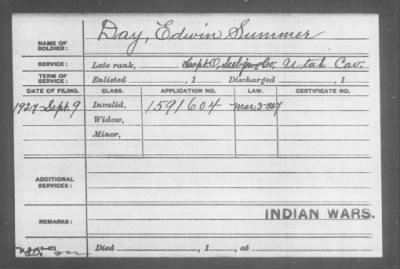 NAME OF SOLDIER: Day, Edwin Summer
SERVICE: Late rank, Capt. O. Co, Utah Cav.
TERM OF SERVICE: Enlisted , 1 Discharged , 1
DATE OF FILING. CLASS. APPLICATION NO. LAW. CERTIFICATE NO.
1927-Sept. 9 Invalid, 1591604 Mar. 3-1927
Widow,
Minor,
ADDITIONAL SERVICES:
INDIAN WARS.
REMARKS:
Died , 1 , at